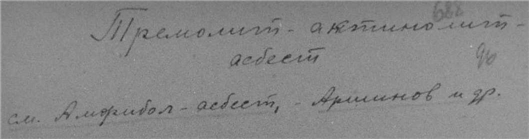 Тремолит-актинолит-
асбест
96
см. Амфибол-асбест, - Аршинов и др.